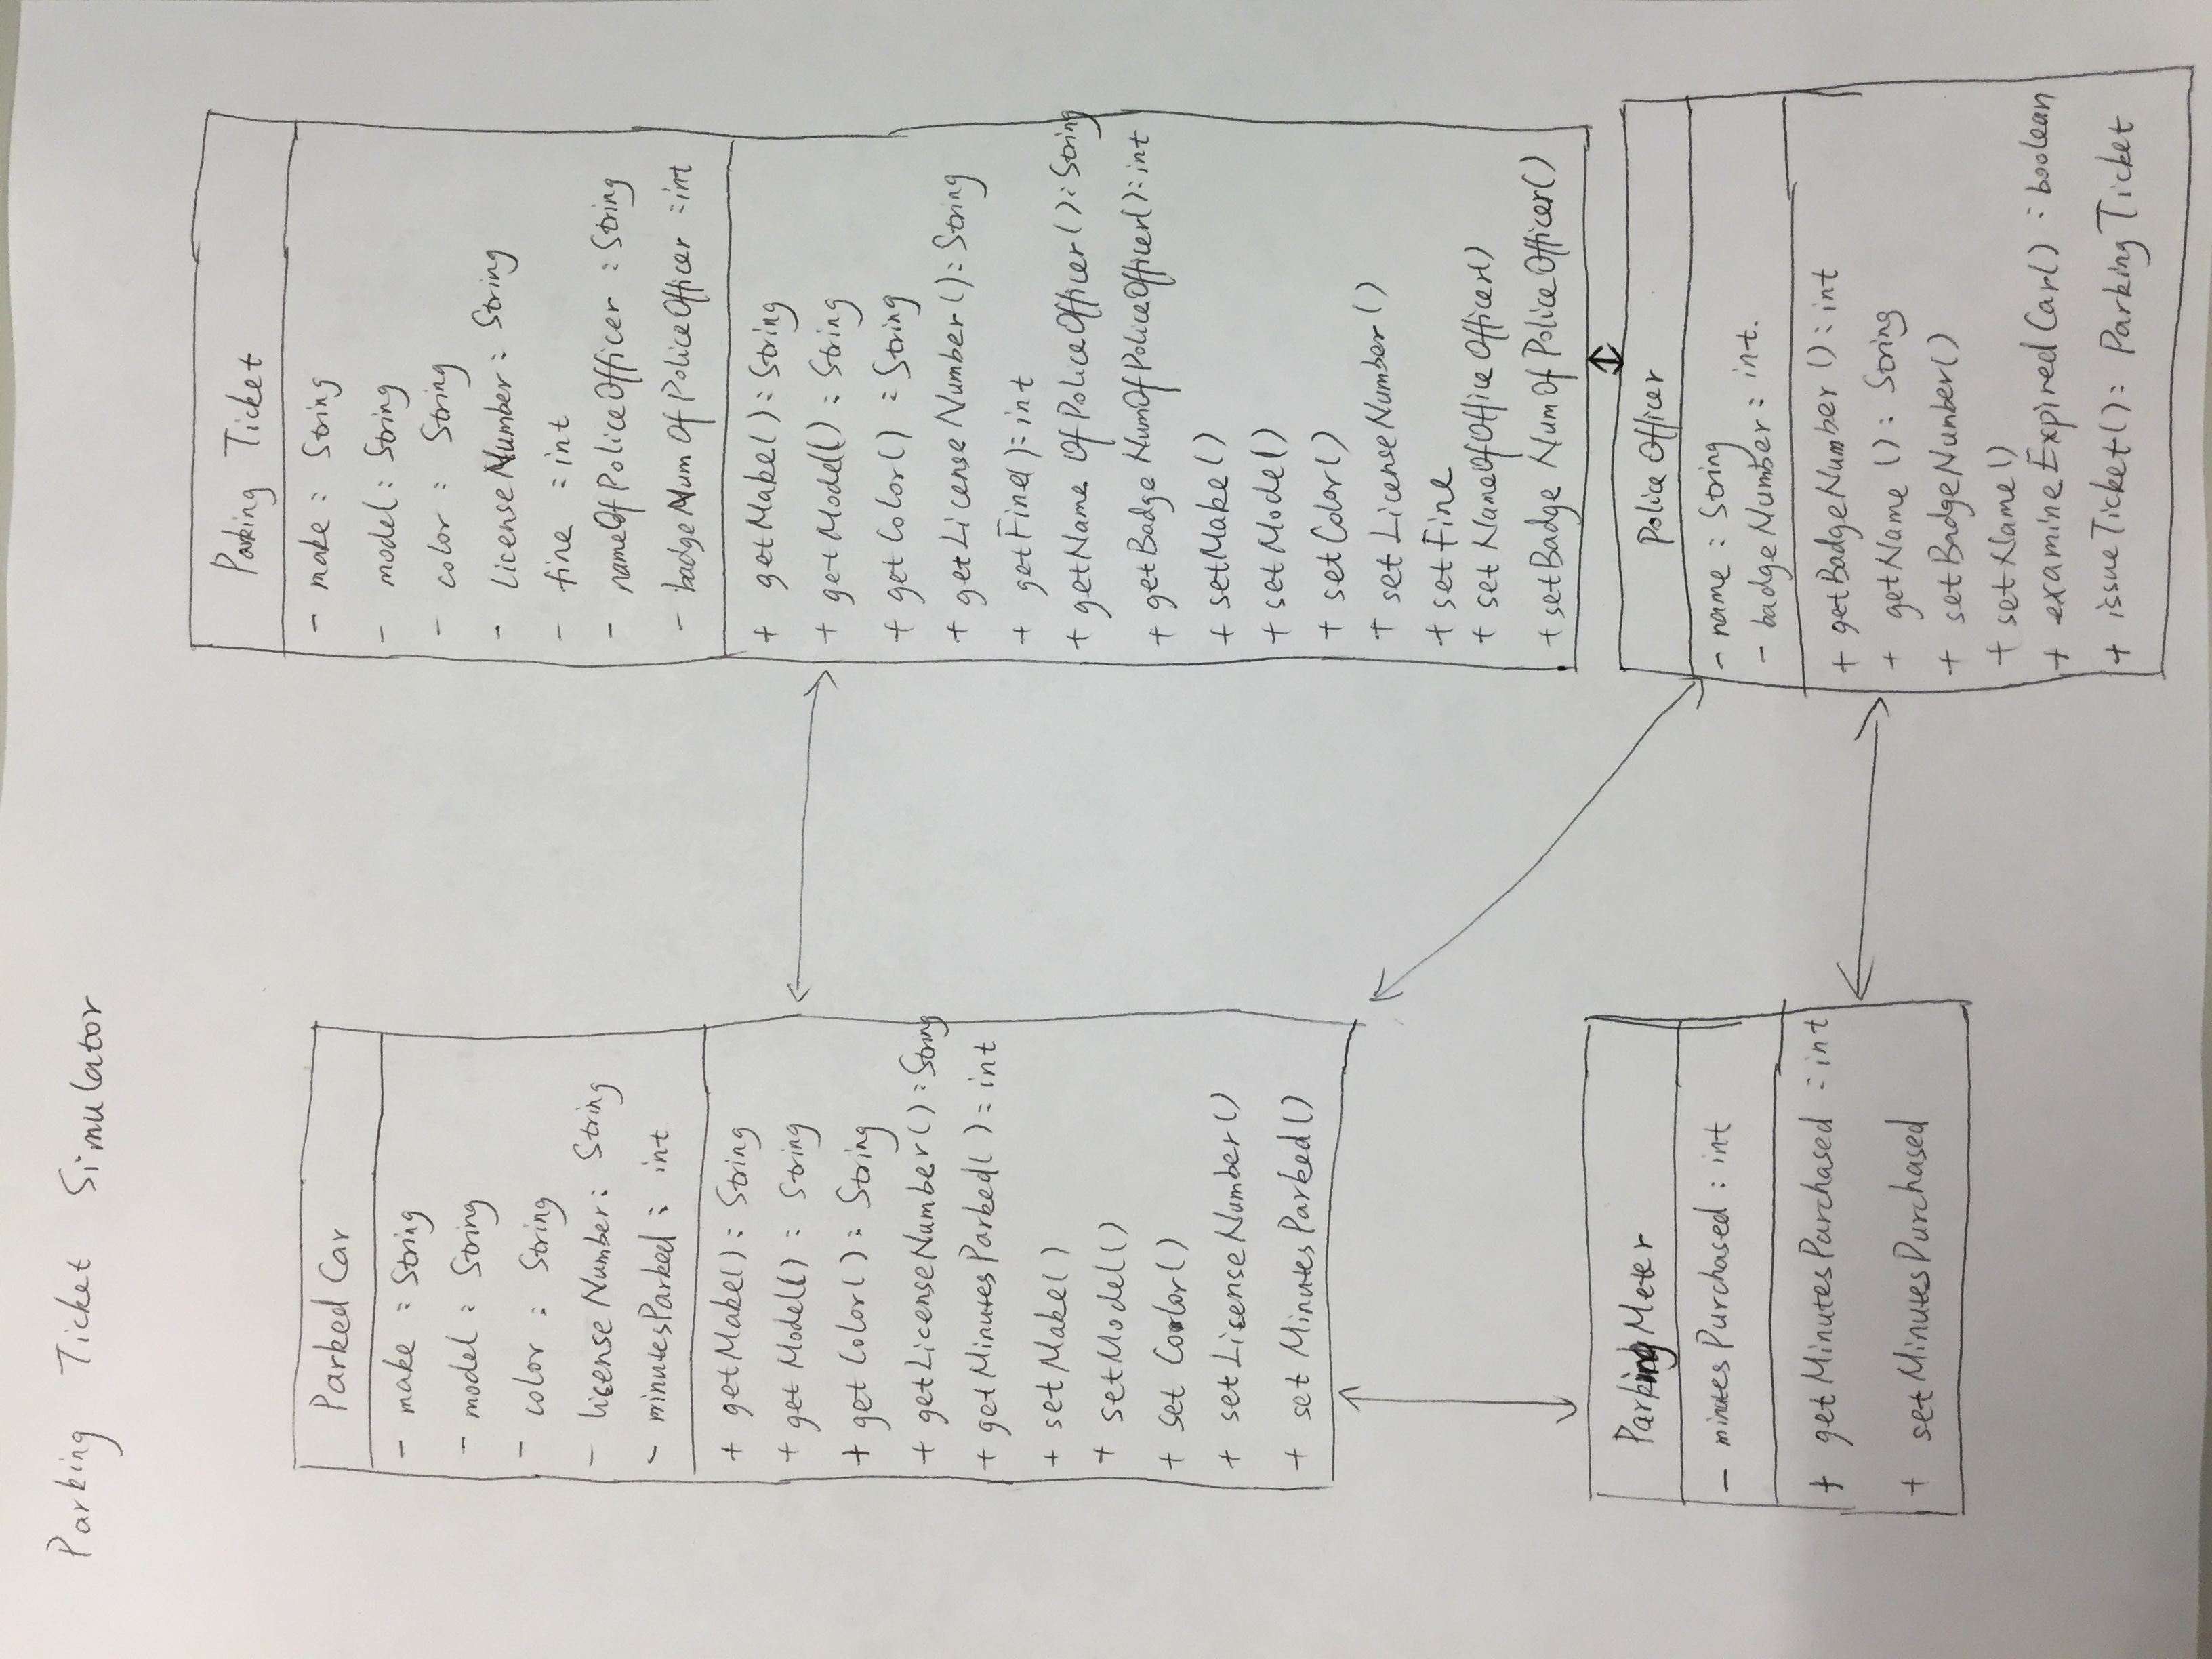 Parking Ticket Simulator
Parked Car
- make : String
- model : String
- color : String
- licenseNumber : String
- minutesParked : int
+ getMake() : String
+ getModel() : String
+ getColor() : String
+ getLicenseNumber() : String
+ getMinutesParked() : int
+ setMake()
+ setModel()
+ set Coolor()
+ setLicenseNumber()
+ setMinutesParked()
Parking Ticket
- make : String
- model : String
- color : String
- licenseNumber : String
- fine : int
- nameOfPoliceOfficer : String
- badgeNumOfPoliceOfficer : int
+ getMake() : String
+ getModel() : String
+ getColor() : String
+ getLicenseNumber() : String
+ getFine() : int
+ getNameOfPoliceOfficer() : String
+ getBadgeNumOfPoliceOfficer() : int
+ setMake()
+ setModel()
+ setColor()
+ setLicenseNumber()
+ setFine
+ setNameOfOfficeOfficer()
+ setBadgeNumOfPoliceOfficer()
ParkingMeter
- minutesPurchased : int
+ getMinutesPurchased : int
+ setMinutesPurchased
Police Officer
- name : String
- badgeNumber : int.
+ getBadgeNumber() : int
+ getName() : String
+ setBadgeNumber()
+ setName()
+ examineExpiredCar() : boolean
+ issueTicket() : ParkingTicket